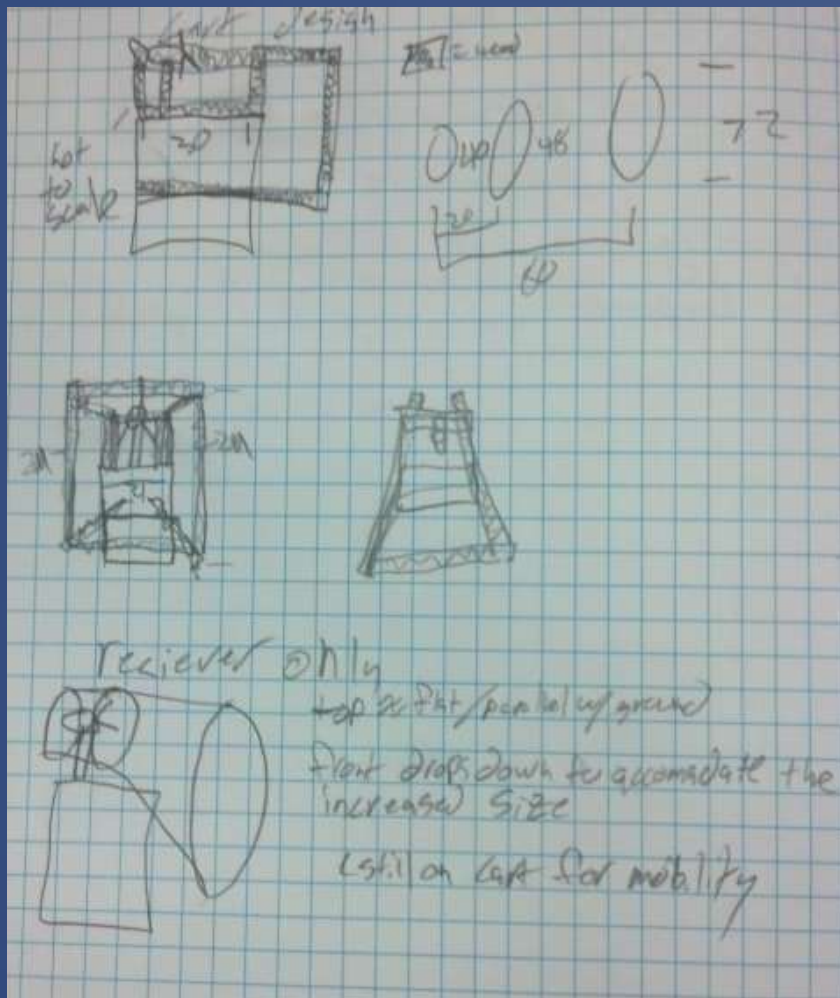 Cart design
= wood
Not
to
scale
20
40
48
72
20
60
2M
2M
reciever only
top is flat/parallel w/ground
front drops down to accomadate the
increased size
(still on cart for mobility